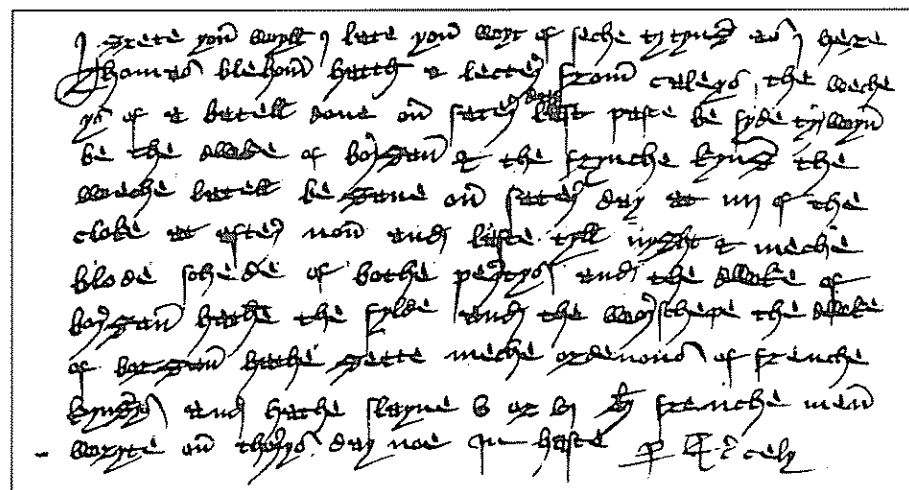 I grete you woyll I late you woyt of seche tytyng as I here
Thomas blehom hatth a letter from caleys the weche
ys of a batell done on sater day last paste be syde tyrwyn
be the dwke of borgan & the frynche kyng the
weche batell be gane on sater day at iiij of the
cloke at after non and laste tyll nyght & meche
blode schede of bothe pertys and the dwke of
borgan hathe the fylde and the worschepe the dwke
of borgan hathe gette meche ordenons of frenche
kyngys and hathe slayne v or vj Ml frenche men
wryte on thorys day noe in haste
p Rc cely